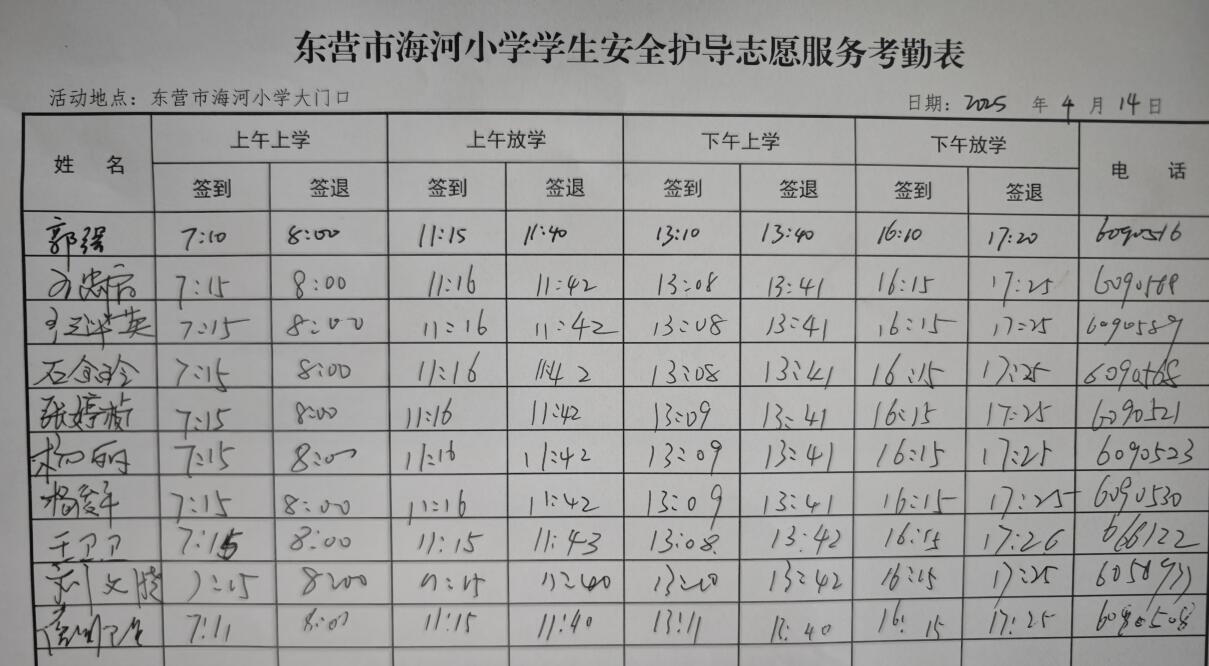 东营市海河小学学生安全护导志愿服务考勤表
活动地点：东营市海河小学大门口 日期：2025 年 4 月 14 日
姓 名 上午上学 上午放学 下午上学 下午放学 电 话
签到 签退 签到 签退 签到 签退 签到 签退
郭强 7:10 8:00 11:15 11:40 13:10 13:40 16:10 17:20 6090516
7:15 8:00 11:16 11:42 13:08 13:41 16:15 17:25 6090589
7:15 8:00 11:16 11:42 13:08 13:41 16:15 17:25 6090589
7:15 8:00 11:16 11:42 13:08 13:41 16:15 17:25 6090568
张婷 7:15 8:00 11:16 11:42 13:09 13:41 16:15 17:25 6090521
杨丽 7:15 8:00 11:16 11:42 13:09 13:41 16:15 17:25 6090523
7:15 8:00 11:16 11:42 13:09 13:41 16:15 17:25 6090530
王卫卫 7:15 8:00 11:15 11:43 13:08 13:42 16:15 17:26 666122
刘文 7:15 8:00 11:15 11:40 13:10 13:42 16:15 17:25
7:11 8:00 11:15 11:40 13:11 16:15 17:25 6090508